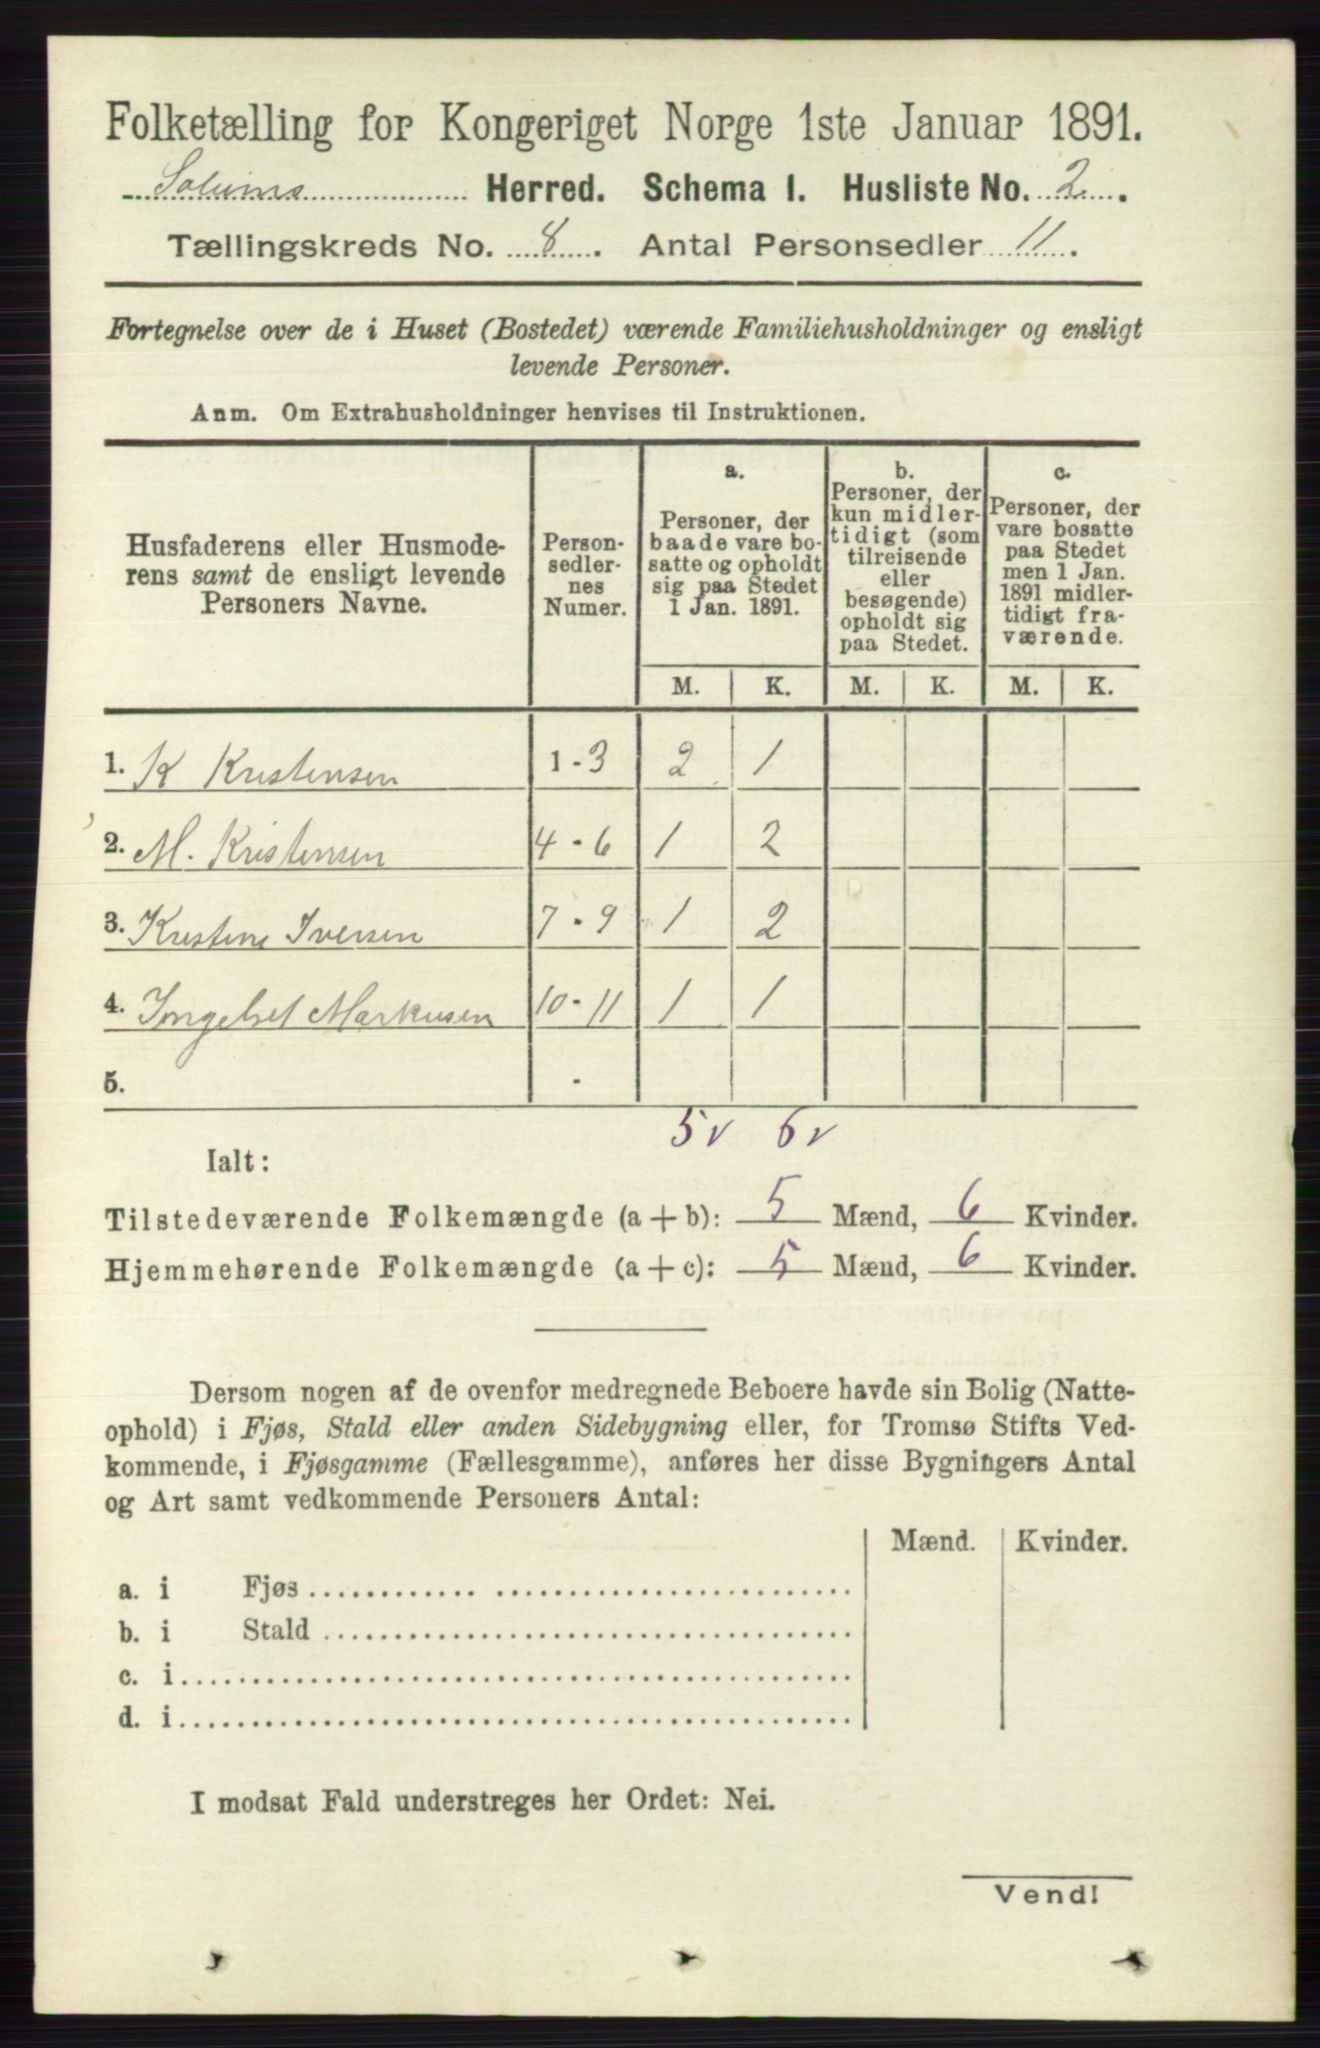 Folketælling for Kongeriget Norge 1ste Januar 1891.
Solums Herred. Schema 1. Husliste No. 2.
Tællingskreds No. 8. Antal Personsedler 11.
Fortegnelse over de i Huset (Bostedet) værende Familiehusholdninger og ensligt
levende Personer.
Anm. Om Extrahusholdninger henvises til Instruktionen.
Husfaderens eller Husmode-
rens samt de ensligt levende
Personers Navne.
Person-
sedler-
nes
Numer.
a.
Personer, der
baade vare bo-
satte og opholdt
sig paa Stedet
1 Jan. 1891.
b.
Personer, der
kun midler-
tidigt (som
tilreisende
eller
besøgende)
opholdt sig
paa Stedet.
c.
Personer, der
vare bosatte
paa Stedet
men 1 Jan.
1891 midler-
tidigt fra-
værende.
M. K. M. K. M. K.
1. K Kristensen 1-3 2 1
2. M. Kristensen 4-6 1 2
3. Kristine Iversen 7-9 1 2
4. Markusen 10-11 1 1
5. -
5v 6v
Ialt:
Tilstedeværende Folkemængde (a+b): 5 Mænd, 6 Kvinder.
Hjemmehørende Folkemængde (a+c): 5 Mænd, 6 Kvinder.
Dersom nogen af de ovenfor medregnede Beboere havde sin Bolig (Natte-
ophold) i Fjøs, Stald eller anden Sidebygning eller, for Tromsø Stifts Ved-
kommende, i Fjøsgamme (Fællesgamme), anføres her disse Bygningers Antal
og Art samt vedkommende Personers Antal:
Mænd. Kvinder.
a. i Fjøs
b. i Stald
c. i
d. i
I modsat Fald understreges her Ordet: Nei.
Vend!